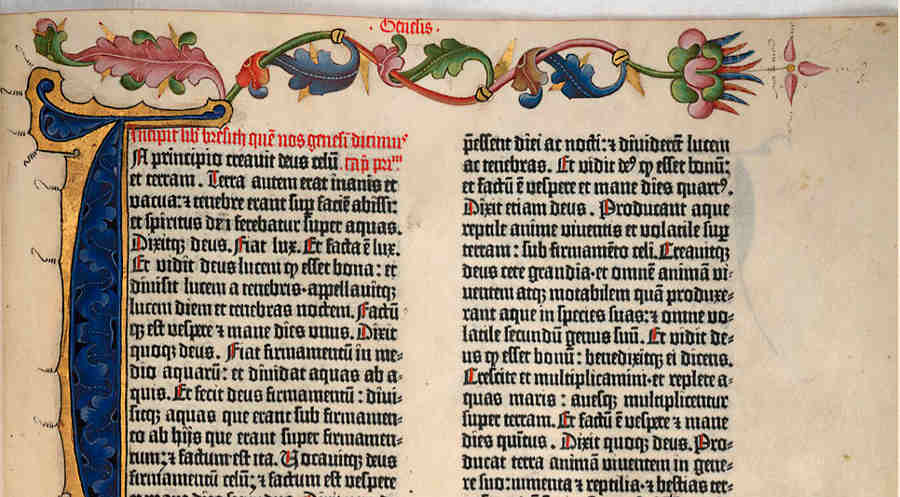 Genesis
Incipit liber bresith quē nos genesim dicimus
In principio creavit deus celū cap. prim.
et terram. Terra autem erat inanis et
vacua: ⁊ tenebre erant sup faciē abissi:
et spiritus dñi ferebatur super aquas.
Dixitqꝫ deus. Fiat lux. Et facta ē lux.
Et vidit deus lucem ꝙ esset bona: et
divisit lucem a tenebris· appellavitqꝫ
lucem diem et tenebras noctem. Factū
qꝫ est vespere ⁊ mane dies unus. Dixit
quoqꝫ deus. Fiat firmamentū in me-
dio aquarū: et dividat aquas ab a-
quis. Et fecit deus firmamentū: divi-
sitqꝫ aquas que erant sub firmamen-
to ab hijs que erant super firmamen-
tum: ⁊ factum est ita. Vocavitqꝫ deus
firmamentū celū: ⁊ factum est vespere
p̄essent diei ac nocti: ⁊ dividerēt lucem
ac tenebras. Et vidit deꝰ ꝙ esset bonū:
et factū ē vespere et mane dies quartꝰ.
Dixit etiam deus. Producant aque
reptile anime viventis et volatile sup
terram: sub firmamēto celi. Creavitqꝫ
deus cete grandia· et omnē animā vi-
ventem atqꝫ motabilem quā produxe-
rant aque in species suas: ⁊ omne vo-
latile secundū genus suū. Et vidit de-
us ꝙ esset bonū: benedixitqꝫ ei dicens.
Crescite et multiplicamini· et replete a-
quas maris: avesqꝫ multiplicentur
super terram. Et factū ē vespere ⁊ mane
dies quītus. Dixit quoqꝫ deus. Pro-
ducat terra animā viventem in gene-
re suo: iumenta ⁊ reptilia· ⁊ bestias ter-